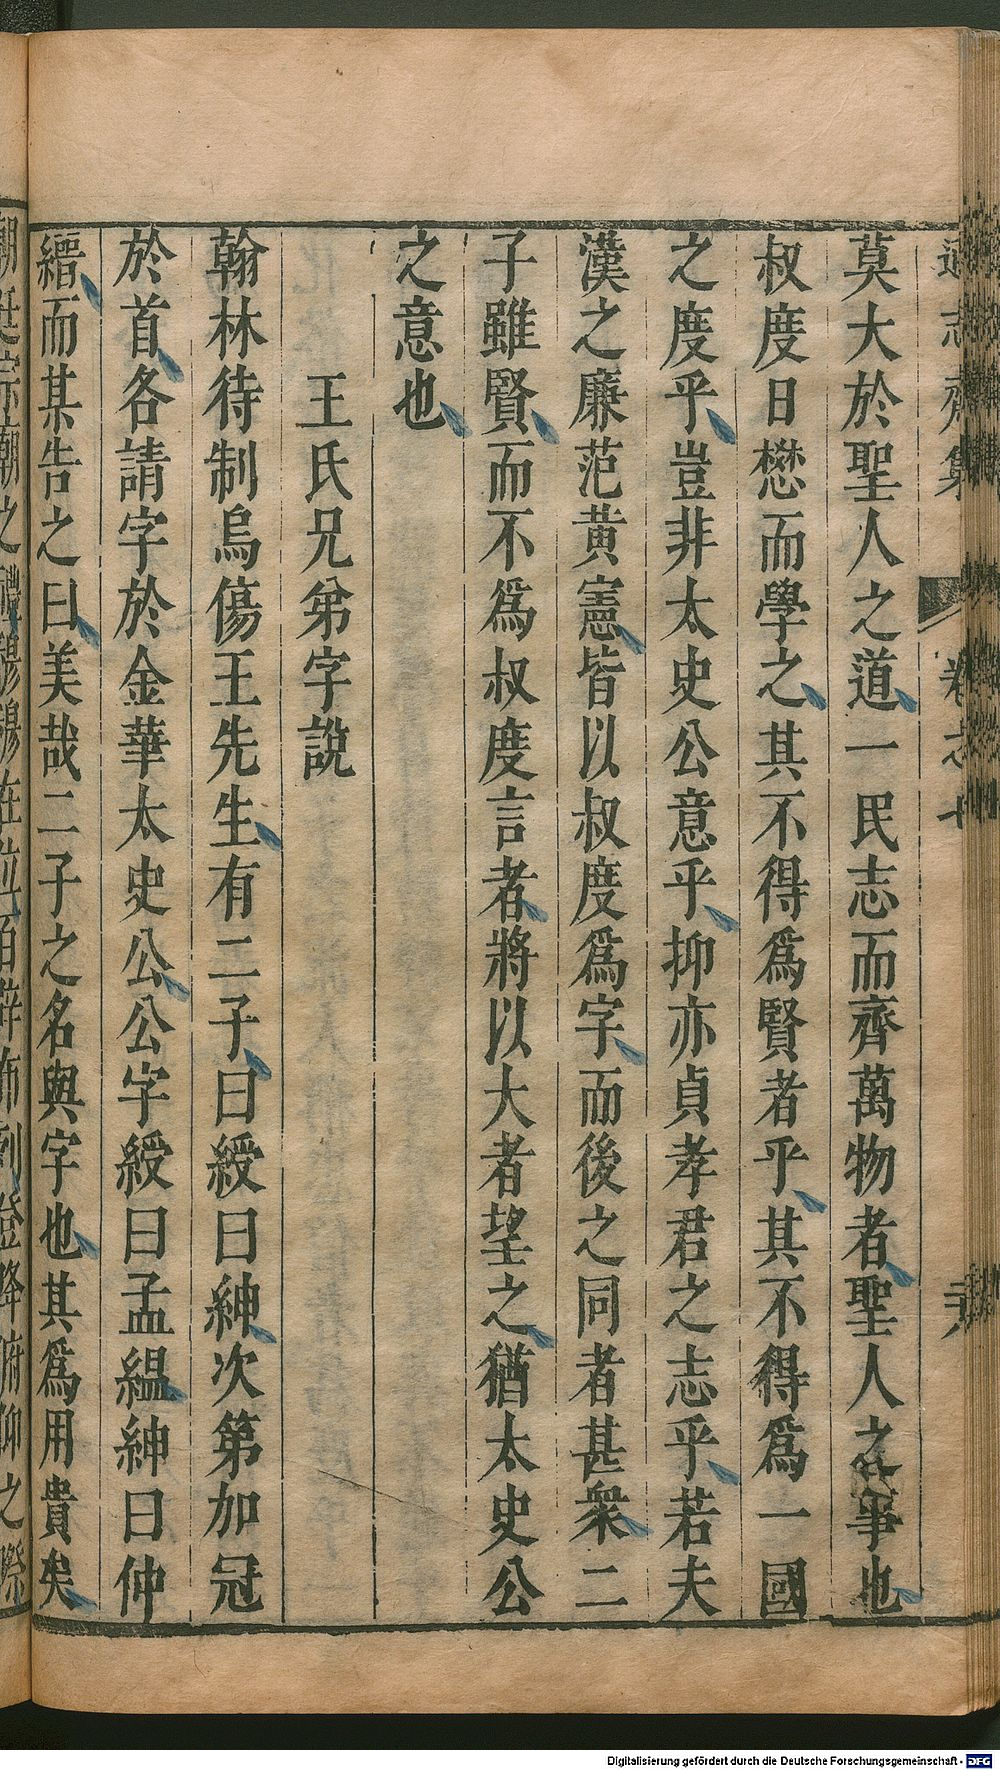 莫大於聖人之道一民志而齊萬物者聖人之事也
叔度日懋而學之其不得爲賢者乎其不得爲一國
之度乎豈非太史公意乎抑亦貞孝君之志乎若夫
漢之廉范黃憲皆以叔度爲字而後之同者甚衆二
子雖賢而不爲叔度言者將以大者望之猶太史公
之意也
王氏兄弟字說
翰林待制烏傷王先生有二子曰綬曰紳次第加冠
於首各請字於金華太史公公字綬曰孟縕紳曰仲
縉而某告之曰美哉二子之名與字也其爲用貴矣
Digitalisierung gefördert durch die Deutsche Forschungsgemeinschaft - DFG